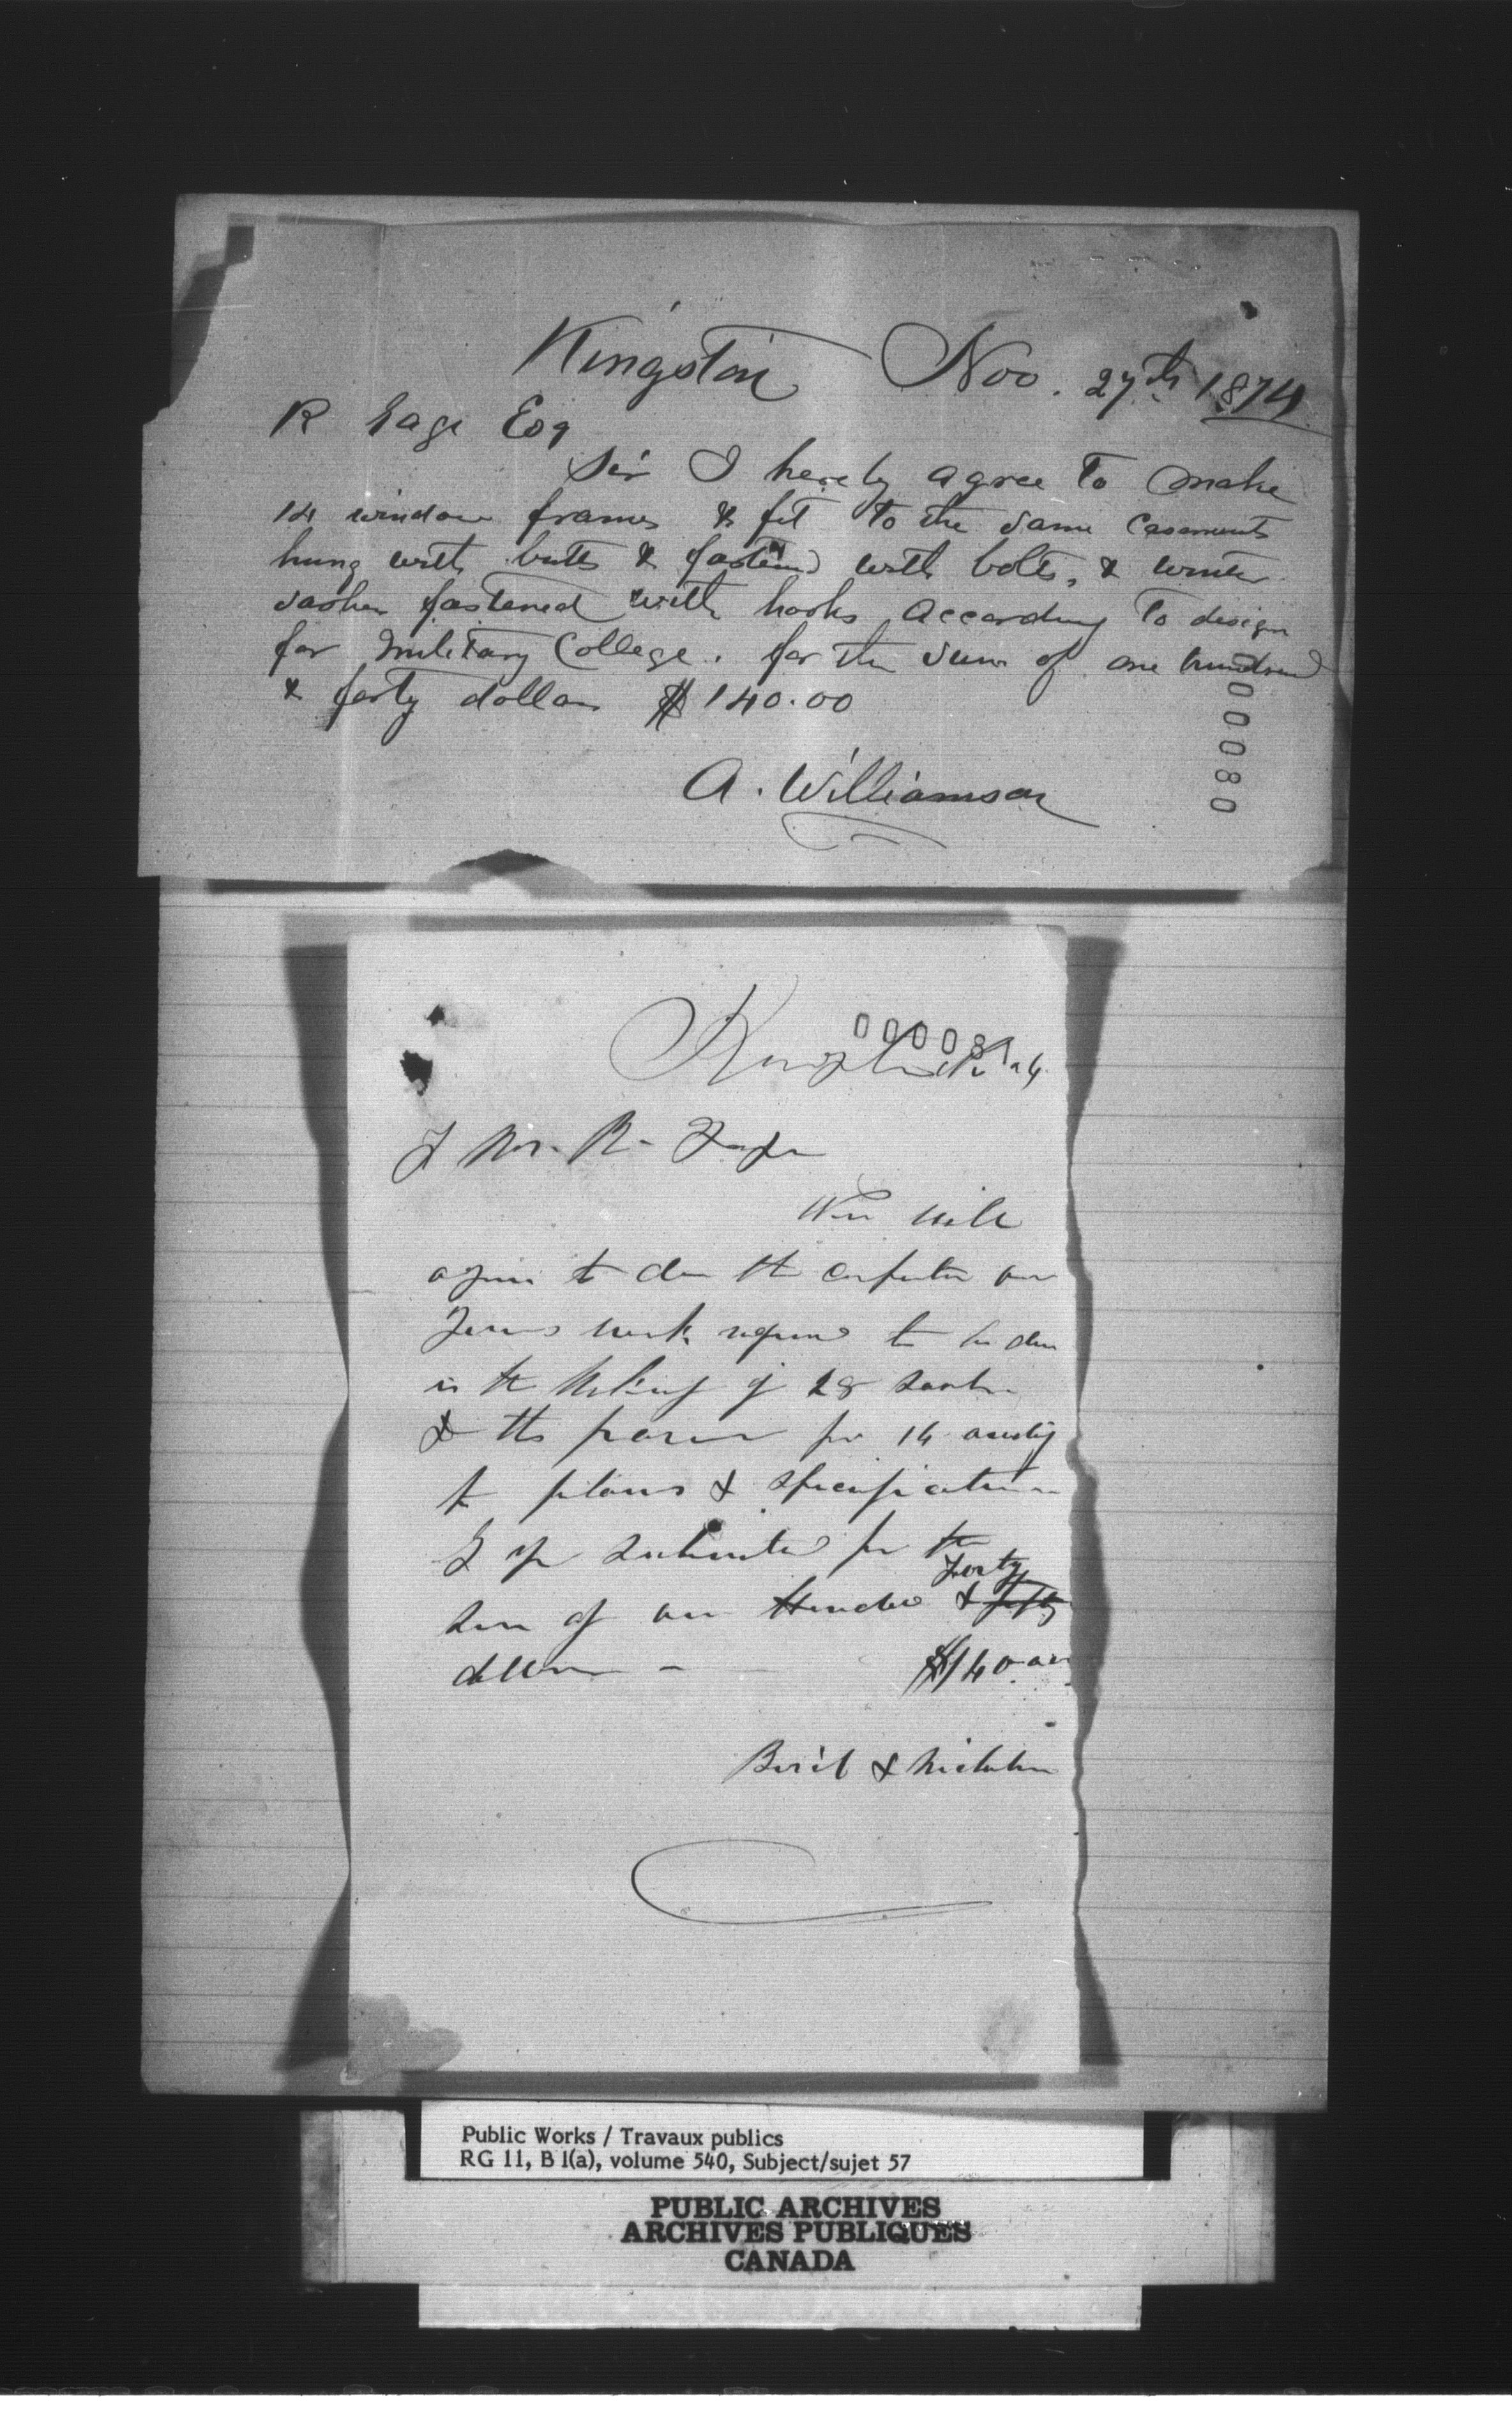 Kingston Nov. 27th 1874
R Gage Esq
Sir I hereby agree To make
14 window frames & fit to the same Casements
hung with butts & fastened with bolts, & winter
sashes fastened with hooks according To design
for Military College. for the sum of one hundred
& forty dollars $140.00
A. Williamson
000080
000081
Kingston
Mr. R. Gage
We will
agree to do the carpenter
work required to be done
in the Making of 28 sashes
& the frames for 14
to plans & specifications
submitted for the
forty
sum of one Hundred & fifty
dollars - $140.00
&
Public Works / Travaux publics
RG 11, B 1(a), volume 540, Subject/sujet 57
PUBLIC ARCHIVES
ARCHIVES PUBLIQUES
CANADA